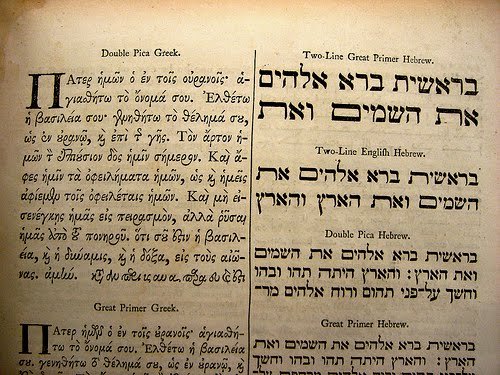 Double Pica Greek.
ΠΑτερ ἡμῶν ὁ ἐν τοῖς οὐρανοῖς· ἁ-
γιασθήτω τὸ ὄνομά σου. Ἐλθέτω
ἡ βασιλεία σου· γενηθήτω τὸ θέλημά σου,
ὡς ἐν οὐρανῷ, καὶ ἐπὶ τῆς γῆς. Τὸν ἄρτον ἡ-
μῶν τὸν ἐπιούσιον δὸς ἡμῖν σήμερον. Καὶ ἄ-
φες ἡμῖν τὰ ὀφειλήματα ἡμῶν, ὡς καὶ ἡμεῖς
ἀφίεμεν τοῖς ὀφειλέταις ἡμῶν. Καὶ μὴ εἰ-
σενέγκης ἡμᾶς εἰς πειρασμὸν, ἀλλὰ ῥῦσαι
ἡμᾶς ἀπὸ τοῦ πονηροῦ. ὅτι σοῦ ἐστιν ἡ βασι-
λεία, καὶ ἡ δύναμις, καὶ ἡ δόξα, εἰς τοὺς αἰῶ-
νας. ἀμήν.
Great Primer Greek.
ΠΑτερ ἡμῶν ὁ ἐν τοῖς οὐρανοῖς· ἁγιασθή-
τω τὸ ὄνομά σου. Ἐλθέτω ἡ βασιλεία
σου. γενηθήτω τὸ θέλημά σου, ὡς ἐν οὐρανῷ, καὶ
Two-Line Great Primer Hebrew.
בראשית ברא אלהים
את השמים ואת
Two-Line Engliſh Hebrew.
בראשית ברא אלהים את
השמים ואת הארץ והארץ
Double Pica Hebrew.
בראשית ברא אלהים את השמים
ואת הארץ: והארץ היתה תהו ובהו
וחשך על-פני תהום ורוח אלהים מר-
Great Primer Hebrew.
בראשית ברא אלהים את השמים ואת
הארץ: והארץ היתה תהו ובהו וחשך